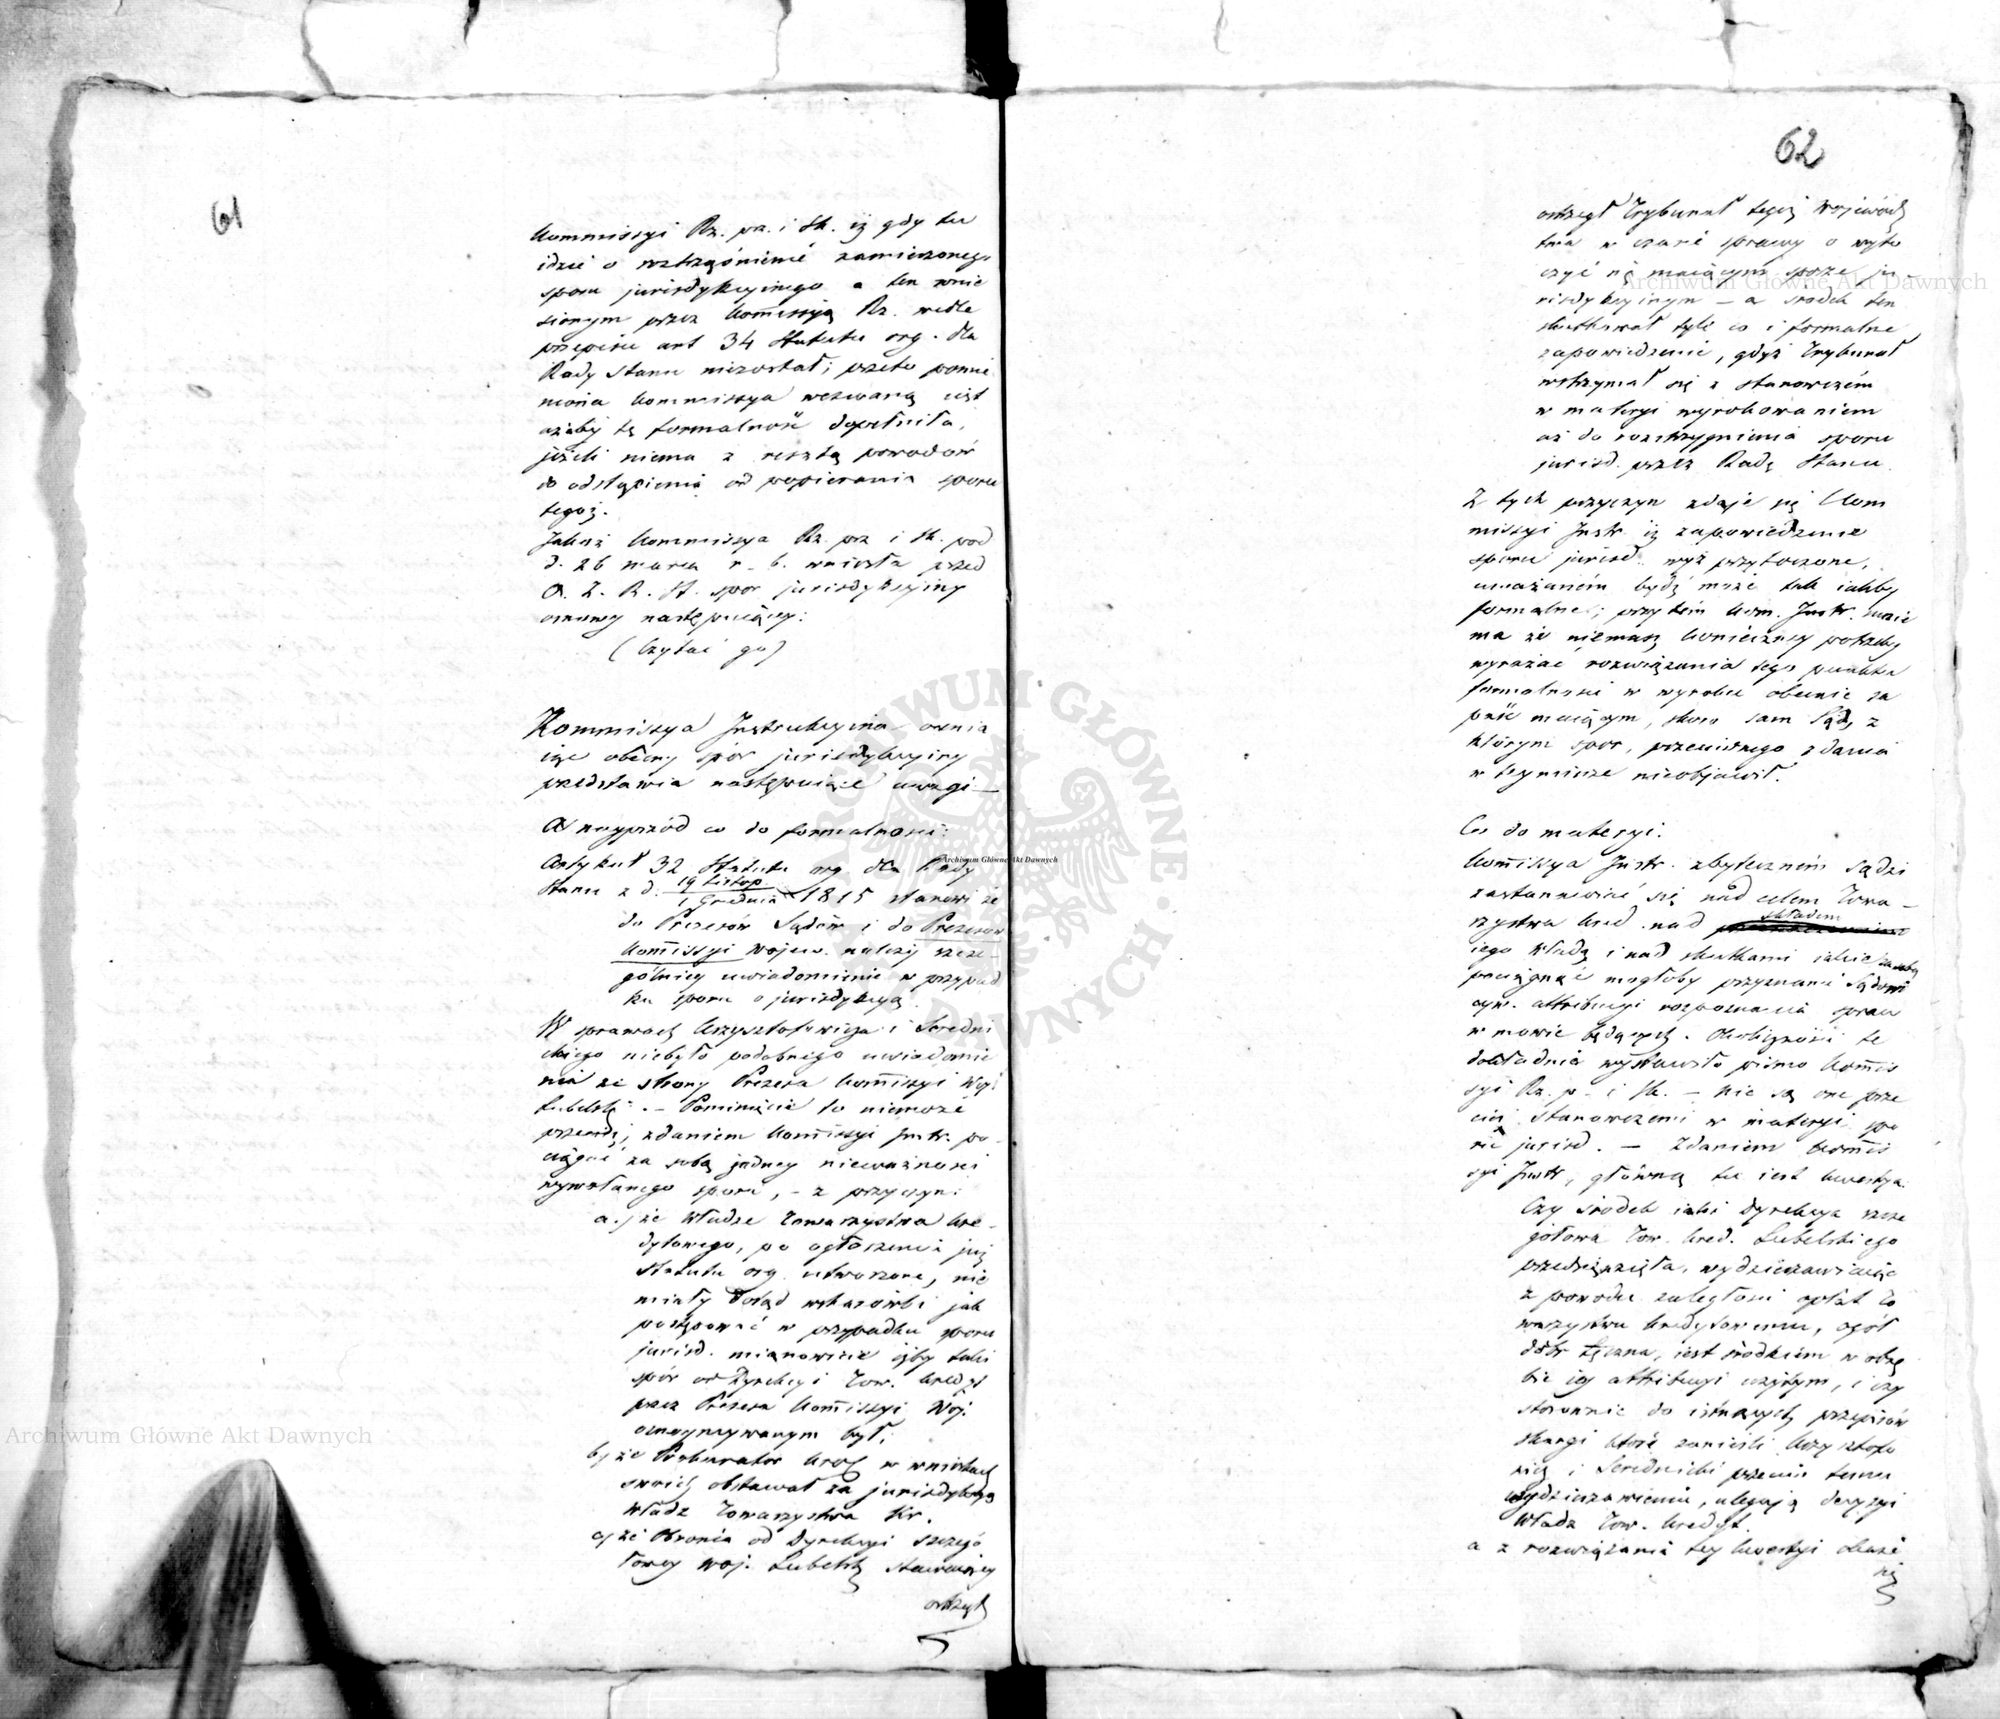 61
Kommissyi Rz. prz. i Sk. iż gdy tu
idzie o roztrząśnienie zamierzonego
sporu jurisdykcyinego a ten wnie
sionym przez Kommissyą Rz. wedle
przepisu art 34 Statutu org. dla
Rady Stanu niezostał, przeto pomie
niona Kommissya wezwaną iest
ażeby tę formalność dopełniła,
jeżeli niema z resztą powodów
do odstąpienia od popierania sporu
tegoż.
Jakoż Kommissya Rz. prz i Sk. pod
d. 26 marca r. b. wniosła przed
O. Z. R. St. spor jurisdykcyiny
osnowy następuiącey:
(Czytać go)
Kommissya Instrukcyina ocenia
iąc obecny spór jurisdykcyiny
przedstawia następuiące uwagi —
A nayprzód co do formalności:
Artykuł 32 Statutu org dla Rady
Stanu z d. 19 Listop / 1 Grudnia 1815 stanowi że
do Prezesów Sądów i do Prezesów
Kommissyi Wojew. należy szcze-
gólniey uwiadomienie w przypad
ku sporu o jurisdykcyą
W sprawach Krzysztofowicza i Seredni
ckiego niebyło podobnego uwiadomie
nia ze strony Prezesa Kommissyi Woj.
Lubelsk. — Pominięcie to niemoże
przecież, zdaniem Kommissyi Instr. po-
ciągać za sobą żadney nieważności
wywołanego sporu, – z przyczyn:
a.) że Władze Towarzystwa Kre-
dytowego, po ogłoszeniu już
Statutu org. utworzone, nie
miały dotąd wskazówki jak
postępować w przypadku sporu
jurisd. mianowicie iżby taki
spór od Dyrekcyi Tow. Kredyt
przez Prezesa Kommissyi Woj.
oznaymywanym był;
b) że Prokurator Król. w wnioskach
swoich obstawał za jurisdykcyą
Władz Towarzystwa Kr.
c) że Obronca od Dyrekcyi Szczegó
łowey Woj. Lubelsk. stawaiący
ostrzegł
62
ostrzegł Trybunał tegoż Wojewódz
twa w czasie sprawy o wyto
czyć się maiącym sporze ju
risdykcyinym — a srodek ten
skutkował tyle co i formalne
zapowiedzenie, gdyż Trybunał
wstrzymał się z stanowczém
w materyi wyrokowaniem
aż do rozstrzygnienia sporu
jurisd. przez Radę Stanu.
Z tych przyczyn zdaje się Kom
missyi Instr. iż zapowiedzenie
sporu jurisd. wyż przytoczone,
uważaném bydź może tak iakby
formalne; przytém Kom. Instr. mnie
ma że niemasz konieczney potrzeby
wyrażać rozwiązania tego punktu
formalności w wyroku obecnie za
paść maiącym, skoro sam Sąd, z
którym spor, przeciwnego zdania
w teymierze nieobjawił.
Co do materyi.
Kommissya Instr. zbyteczném sądzi
zastanawiać się nad celem Towa-
rzystwa Kred. nad składem
iego Władz i nad skutkami iakie za sobą
pociągnąć mogłoby przyznanie Sądowi
cyw. attribucyi rozpoznania spraw
w mowie będących. Okoliczności te
dokładnie wystawiło pismo Kommis
syi Rz. p. i Sk. — Nie są one prze
cież stanowczemi w materyi spo
rze jurisd. — Zdaniem Kommis
syi Instr, główną tu iest kwestya.
Czy srodek iaki Dyrekcya szcze
gółowa Tow. Kred. Lubelskiego
przedsięwzięła, wydzierżawiaiąc
z powodu zaległości opłat To
warzystwu kredytowemu, ogół
dóbr Łęczna, iest środkiem w obrę
bie iey attribucyi użytym, i czy
stosownie do istnących przepisów
skargi które zanieśli Krzysztofo
wicz i Serednicki przeciw temu
wydzierżawieniu, ulegają decyzyi
Władz Tow. Kredyt.
a z rozwiązania tey kwestyi okaże
się